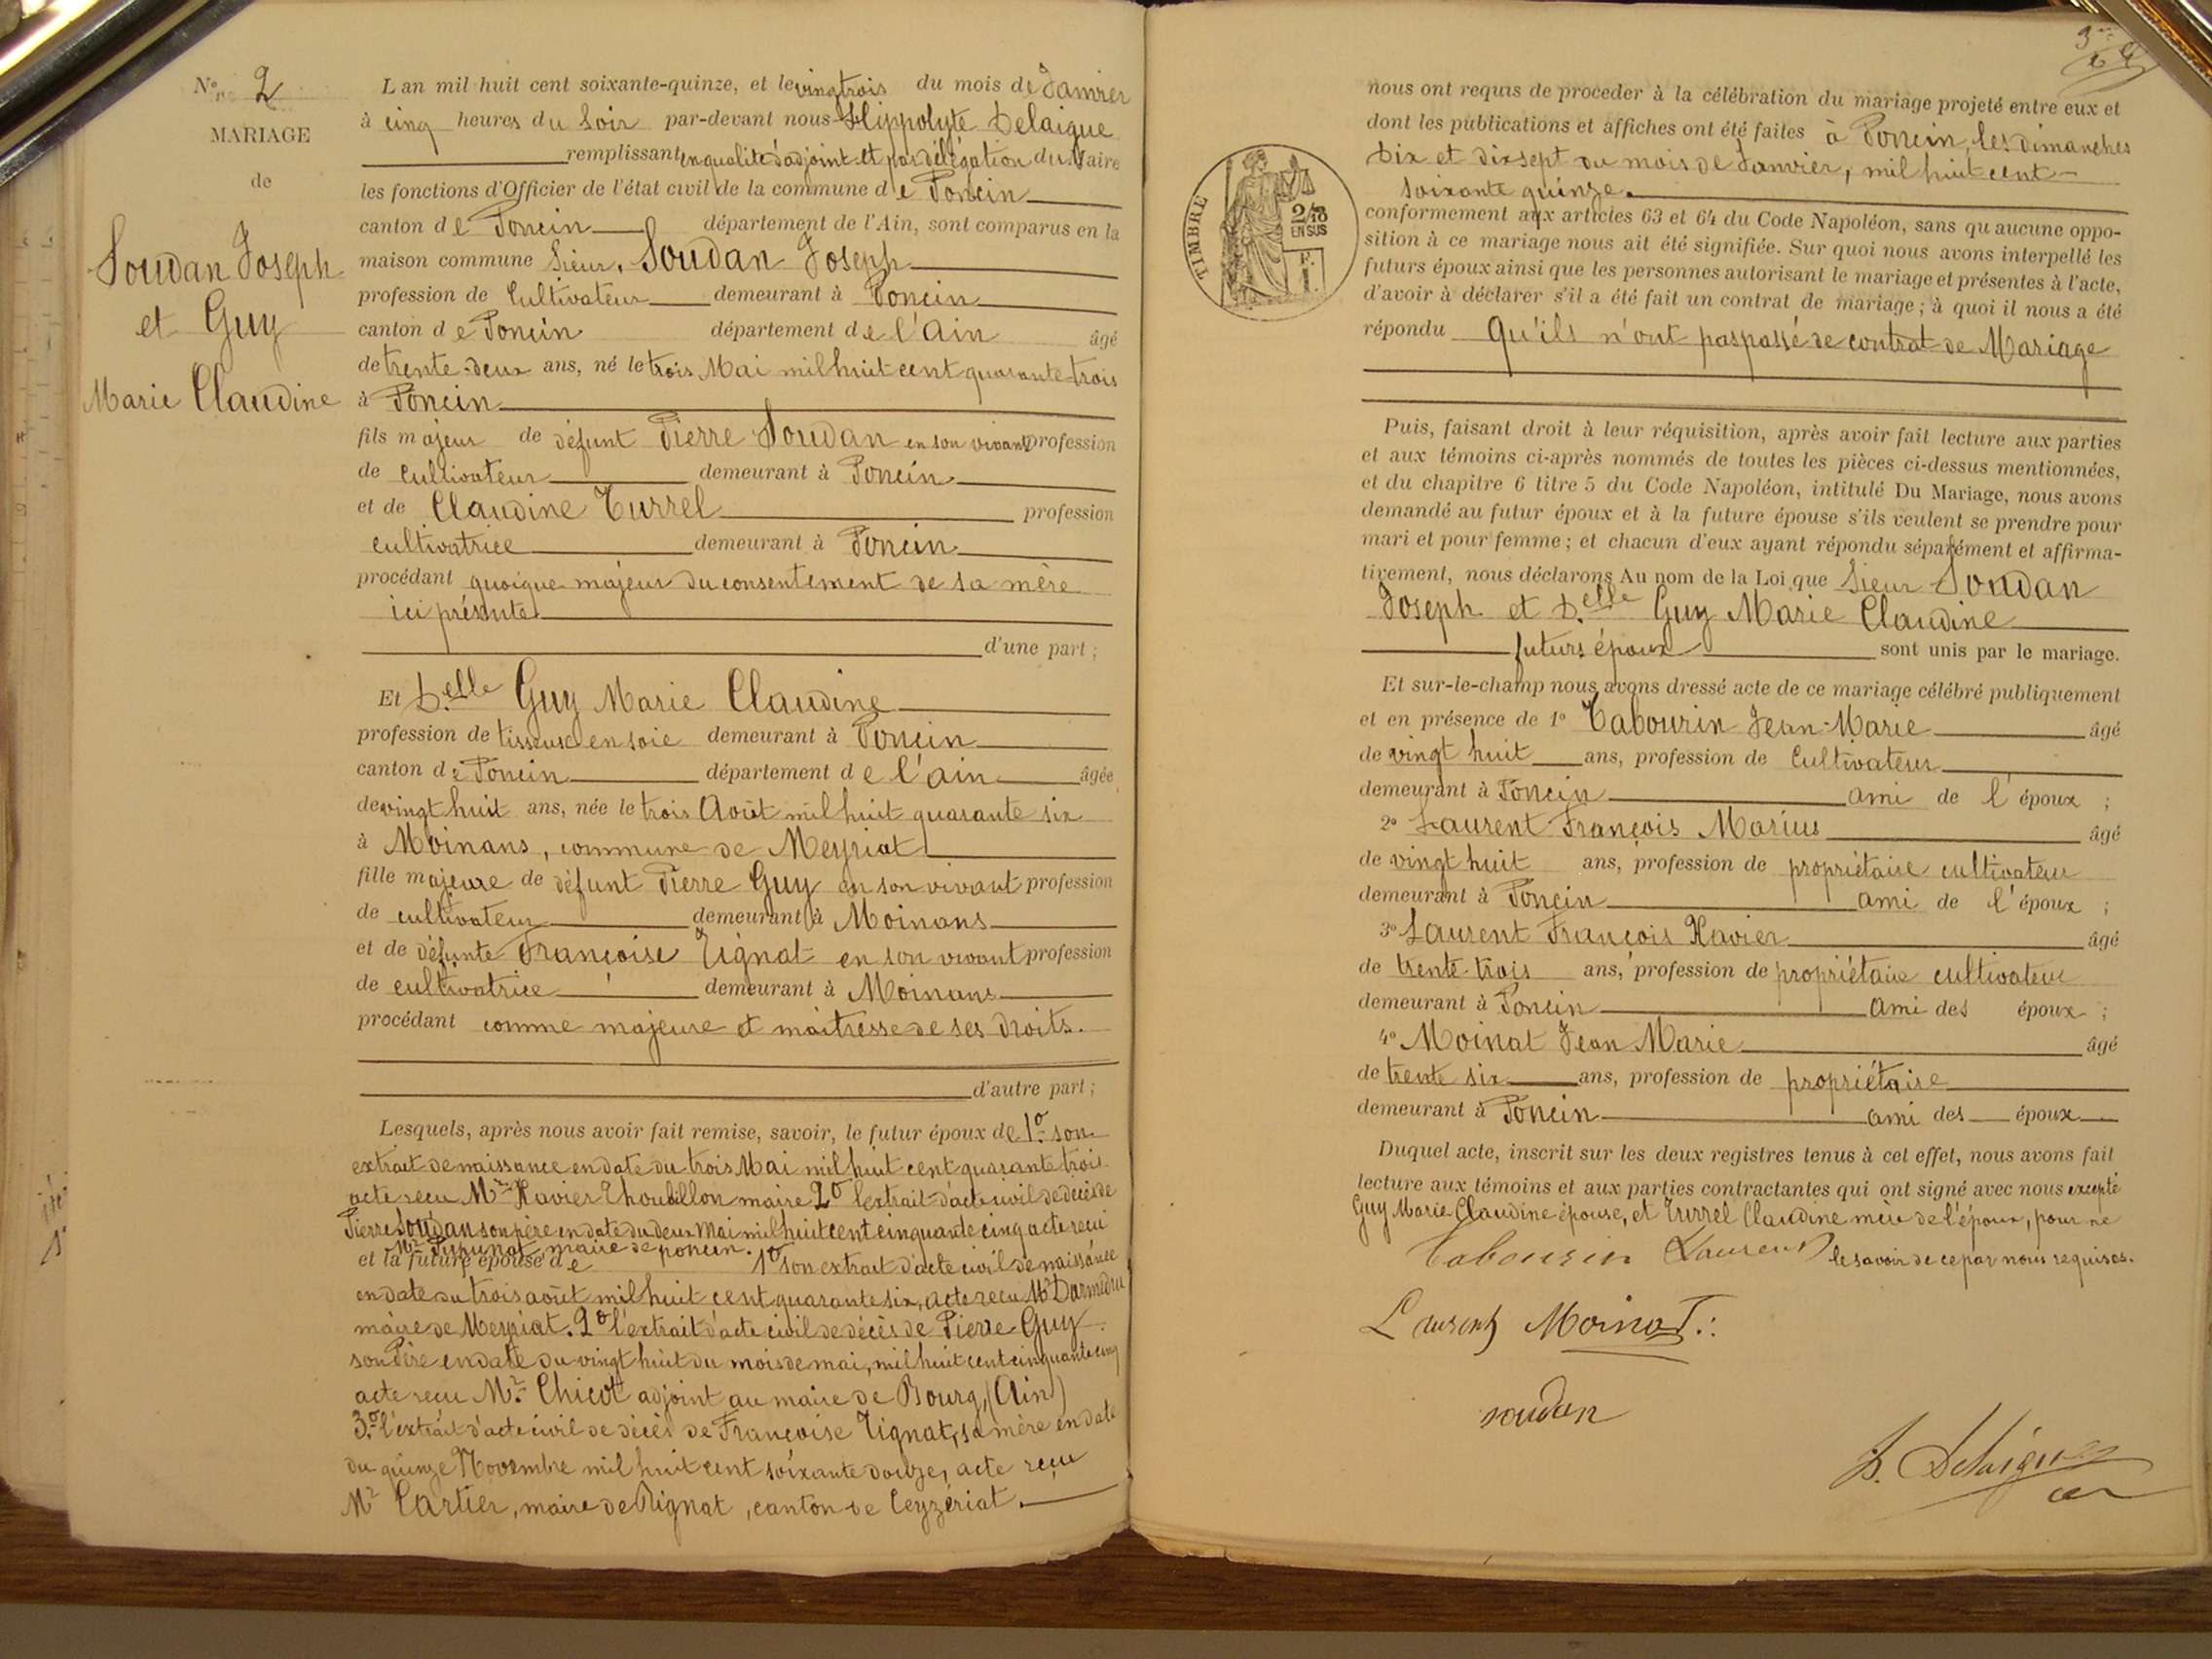 No 2
MARIAGE
de
Soudan Joseph
et Guy
Marie Claudine
L'an mil huit cent soixante-quinze, et le vingt trois du mois de Janvier
à cinq heures du Soir par-devant nous Hippolyte Delaigue
remplissant en qualité d'adjoint et par délégation du Maire
les fonctions d'Officier de l'état civil de la commune de Poncin
canton de Poncin département de l'Ain, sont comparus en la
maison commune Sieur Soudan Joseph
profession de Cultivateur demeurant à Poncin
canton de Poncin département de l'Ain âgé
de trente-deux ans, né le trois Mai mil huit cent quarante trois
à Poncin
fils majeur de défunt Pierre Soudan en son vivant profession
de cultivateur demeurant à Poncin
et de Claudine Turrel profession
cultivatrice demeurant à Poncin
procédant quoique majeur du consentement de sa mère
ici présente
d'une part ;
Et D.elle Guy Marie Claudine
profession de tisseuse en soie demeurant à Poncin
canton de Poncin département de l'ain âgée
de vingt huit ans, née le trois Août mil huit quarante six
à Moinans, commune de Meyriat
fille majeure de défunt Pierre Guy en son vivant profession
de cultivateur demeurant à Moinans
et de défunte Françoise Tignat en son vivant profession
de cultivatrice demeurant à Moinans
procédant comme majeure et maîtresse de ses droits.
d'autre part ;
Lesquels, après nous avoir fait remise, savoir, le futur époux de 1o son
extrait de naissance en date du trois Mai mil huit cent quarante trois
acte reçu Mr Xavier Thoubillon maire 2o l'extrait d'acte civil de décès de
Pierre Soudan son père en date du deux Mai mil huit cent cinquante cinq acte reçu
Mr maire de poncin.
et la future épouse de 1o son extrait d'acte civil de naissance
en date du trois août mil huit cent quarante six, acte reçu Mr Darmedru
maire de Meyriat. 2o l'extrait d'acte civil de décès de Pierre Guy
son Père en date du vingt huit du mois de mai, mil huit cent cinquante cinq
acte reçu Mr Chicot adjoint au maire de Bourg, (Ain)
3o l'extrait d'acte civil de décès de Françoise Tignat, sa mère en date
du quinze Novembre mil huit cent soixante douze, acte reçu
Mr Cartier, maire de Rignat, canton de Ceyzériat.
nous ont requis de procéder à la célébration du mariage projeté entre eux et
dont les publications et affiches ont été faites à Poncin, les dimanches
dix et dix sept du mois de Janvier, mil huit cent
soixante quinze.
conformement aux articles 63 et 64 du Code Napoléon, sans qu'aucune oppo-
sition à ce mariage nous ait été signifiée. Sur quoi nous avons interpellé les
futurs époux ainsi que les personnes autorisant le mariage et présentes à l'acte,
d'avoir à déclarer s'il a été fait un contrat de mariage ; à quoi il nous a été
répondu Qu'ils n'ont pas passé de contrat de Mariage
TIMBRE
2/10
EN SUS
F.
1.
Puis, faisant droit à leur réquisition, après avoir fait lecture aux parties
et aux témoins ci-après nommés de toutes les pièces ci-dessus mentionnées,
et du chapitre 6 titre 5 du Code Napoléon, intitulé Du Mariage, nous avons
demandé au futur époux et à la future épouse s'ils veulent se prendre pour
mari et pour femme ; et chacun d'eux ayant répondu séparément et affirma-
tivement, nous déclarons Au nom de la Loi que Sieur Soudan
Joseph et D.elle Guy Marie Claudine
futurs époux sont unis par le mariage.
Et sur-le-champ nous avons dressé acte de ce mariage célébré publiquement
et en présence de 1o Tabourin Jean-Marie âgé
de vingt huit ans, profession de Cultivateur
demeurant à Poncin ami de l'époux ;
2o Laurent François Marius âgé
de vingt huit ans, profession de propriétaire cultivateur
demeurant à Poncin ami de l'époux ;
3o Laurent François Xavier âgé
de trente-trois ans, profession de propriétaire cultivateur
demeurant à Poncin ami des époux ;
4o Moinat Jean Marie âgé
de trente six ans, profession de propriétaire
demeurant à Poncin ami des époux
Duquel acte, inscrit sur les deux registres tenus à cet effet, nous avons fait
lecture aux témoins et aux parties contractantes qui ont signé avec nous excepté
Guy Marie Claudine épouse, et Turrel Claudine mère de l'époux, pour ne
Tabourin Laurent le savoir de ce par nous requises.
Laurent Moinat
soudan
H. Delaigue